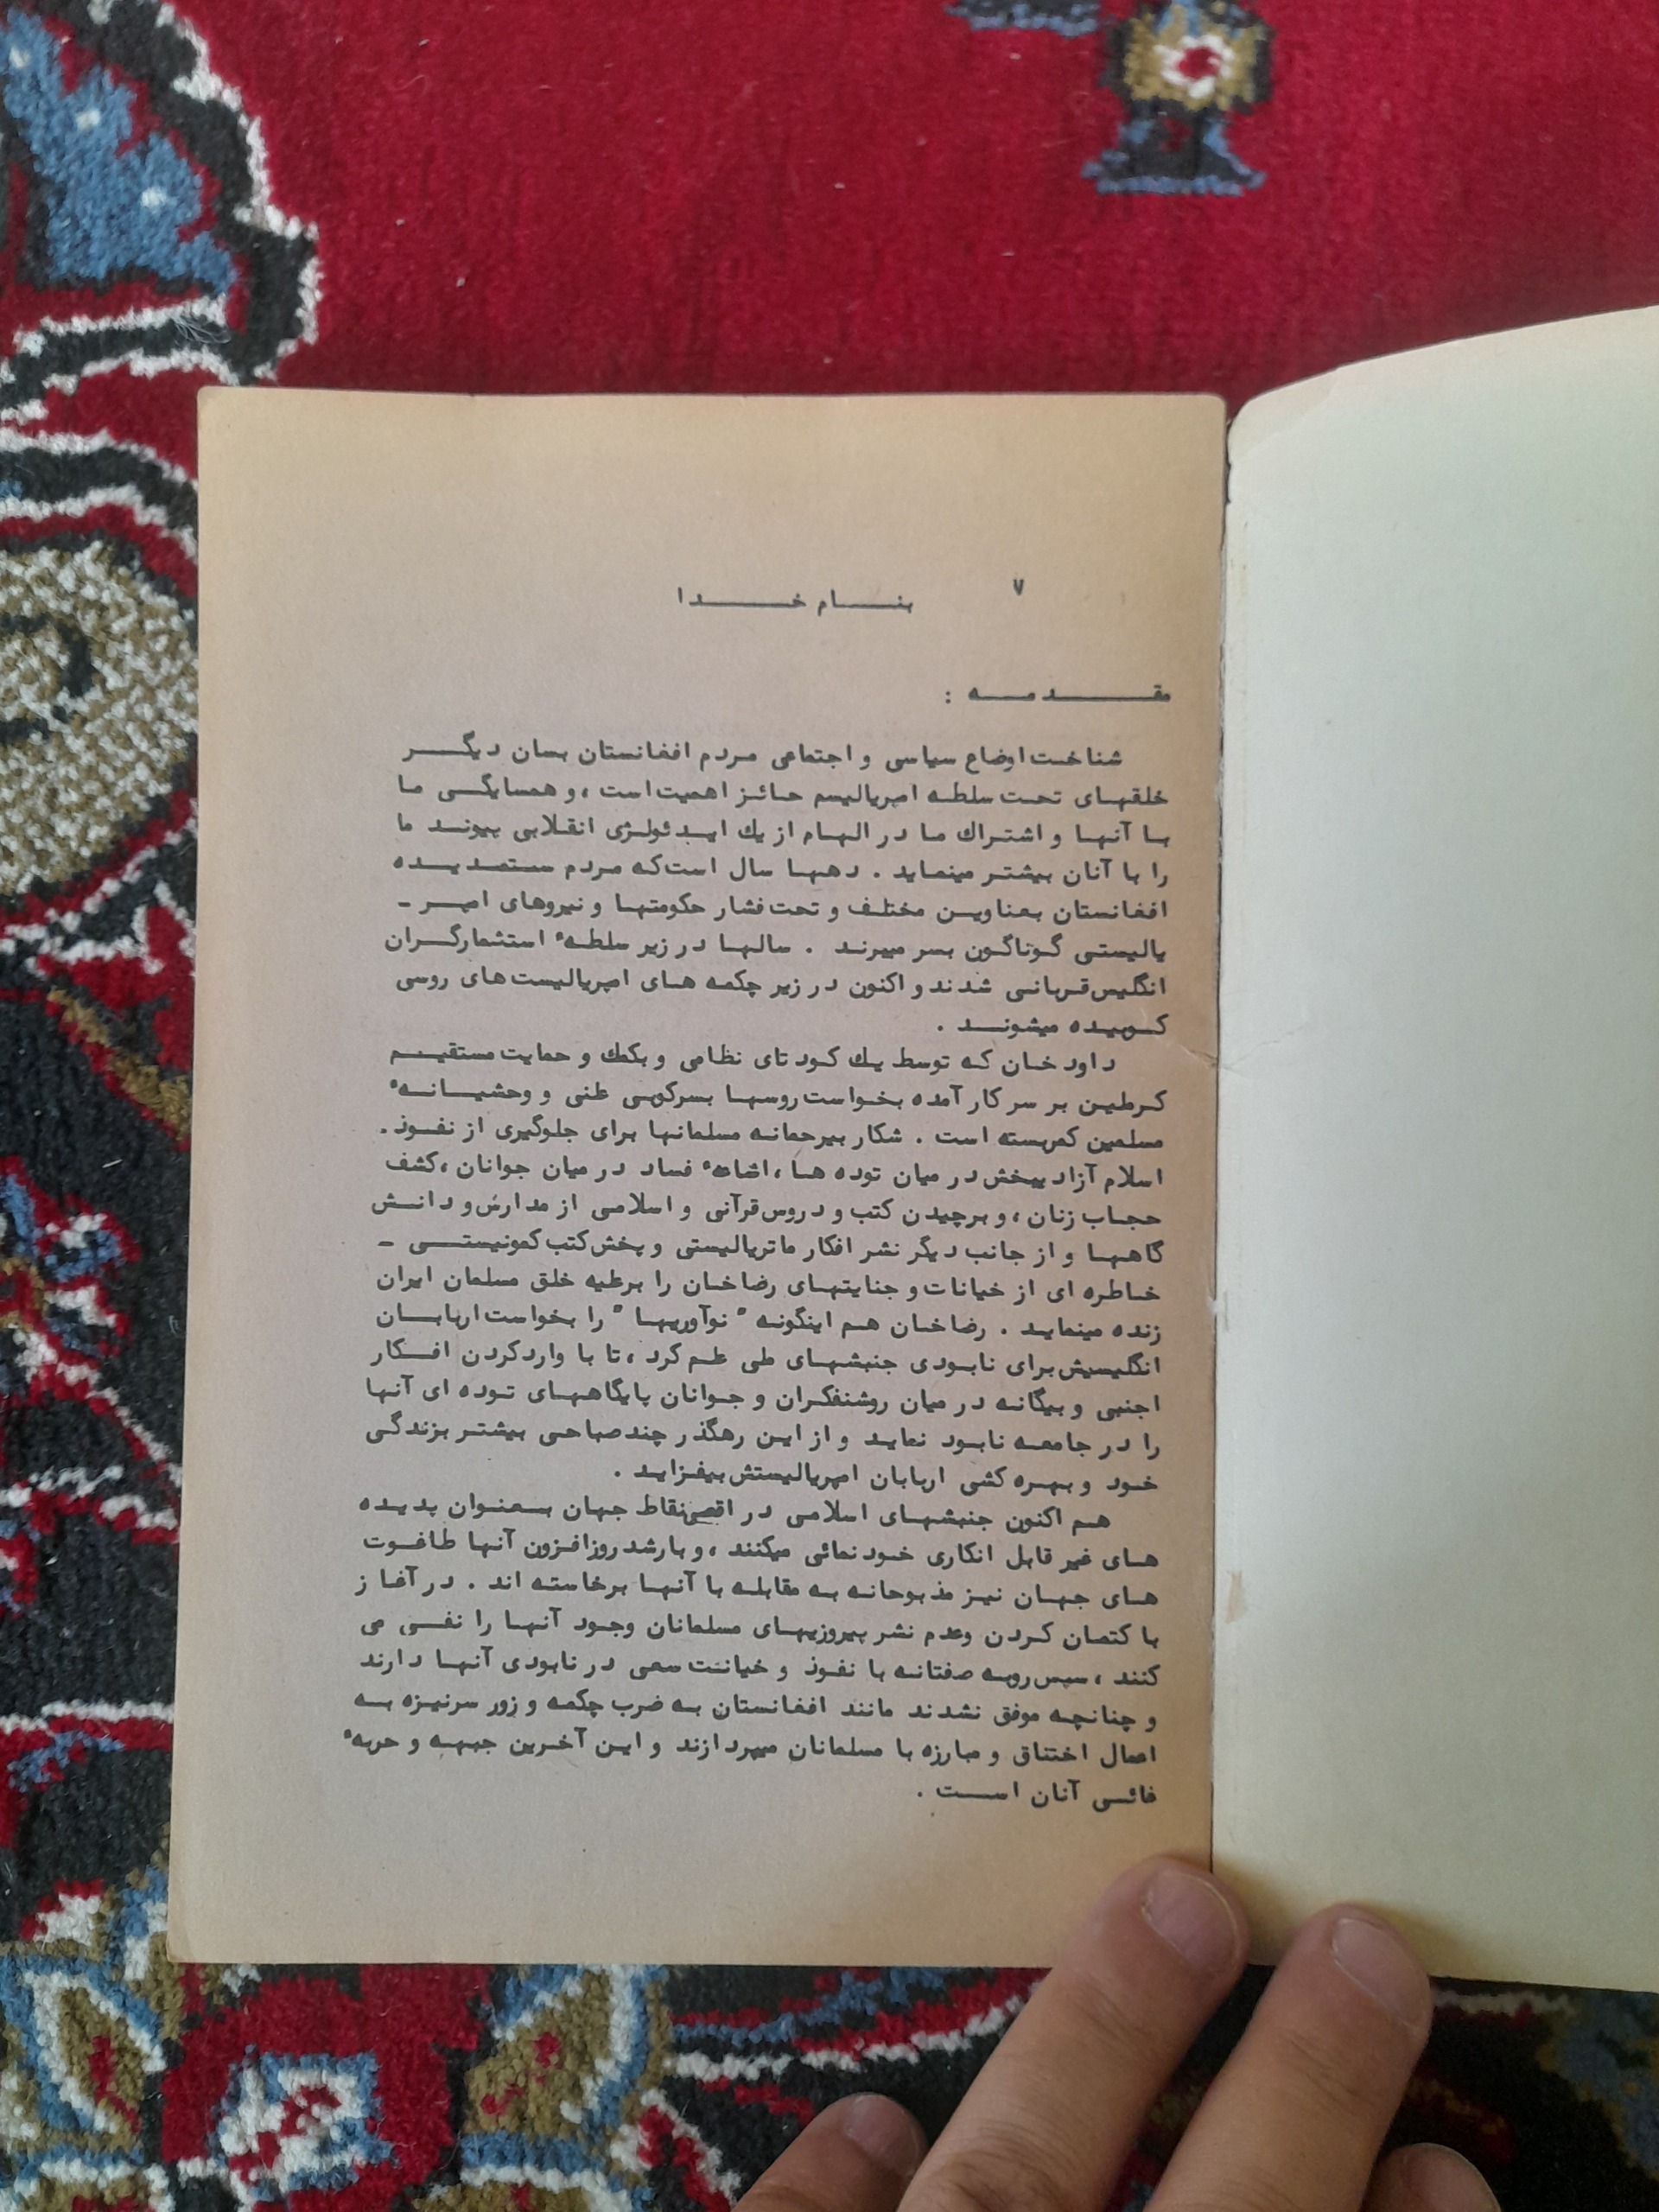 ۷
بنام خدا
مقدمه :
شناخت اوضاع سیاسی و اجتماعی مردم افغانستان بسان دیگر
خلقهای تحت سلطه امپریالیسم حائز اهمیت است ، و همسایگی ما
با آنها و اشتراک ما در الهام از یک ایدئولژی انقلابی پیوند ما
را با آنان بیشتر مینماید . دهها سال است که مردم ستمدیده
افغانستان بعناوین مختلف و تحت فشار حکومتها و نیروهای امپر ـ
یالیستی گوناگون بسر میبرند . سالها در زیر سلطهٔ استثمارگران
انگلیس قربانی شدند و اکنون در زیر چکمه های امپریالیست های روسی
کوبیده میشوند .
داود خان که توسط یک کودتای نظامی و بکمک و حمایت مستقیم
کرملین بر سر کار آمده بخواست روسها بسرکوبی علنی و وحشیانهٔ
مسلمین کمربسته است . شکار بیرحمانه مسلمانها برای جلوگیری از نفوذ.
اسلام آزاد یبخش در میان توده ها ، اشاعهٔ فساد در میان جوانان ، کشف
حجاب زنان ، و برچیدن کتب و دروس قرآنی و اسلامی از مدارس و دانش
گاهها و از جانب دیگر نشر افکار ماتریالیستی و پخش کتب کمونیستی ـ
خاطره ای از خیانات و جنایتهای رضاخان را برعلیه خلق مسلمان ایران
زنده مینماید . رضاخان هم اینگونه " نوآوریها " را بخواست اربابان
انگلیسیش برای نابودی جنبشهای ملی علم کرد ، تا با وارد کردن افکار
اجنبی و بیگانه در میان روشنفکران و جوانان پایگاههای توده ای آنها
را در جامعه نابود نماید و از این رهگذر چند صباحی بیشتر بزندگی
خود و بهره کشی اربابان امپریالیستش بیفزاید .
هم اکنون جنبشهای اسلامی در اقصی نقاط جهان بعنوان پدیده
های غیر قابل انکاری خودنمائی میکنند ، و بارشد روزافزون آنها طاغوت
های جهان نیز مذبوحانه به مقابله با آنها برخاسته اند . در آغاز
با کتمان کردن وعدم نشر پیروزیهای مسلمانان وجود آنها را نفی می
کنند ، سپس روبه صفتانه با نفوذ و خیانت سعی در نابودی آنها دارند
و چنانچه موفق نشدند مانند افغانستان به ضرب چکمه و زور سرنیزه به
اعمال اختناق و مبارزه با مسلمانان میپردازند و این آخرین جبهه و حربهٔ
آنان است .